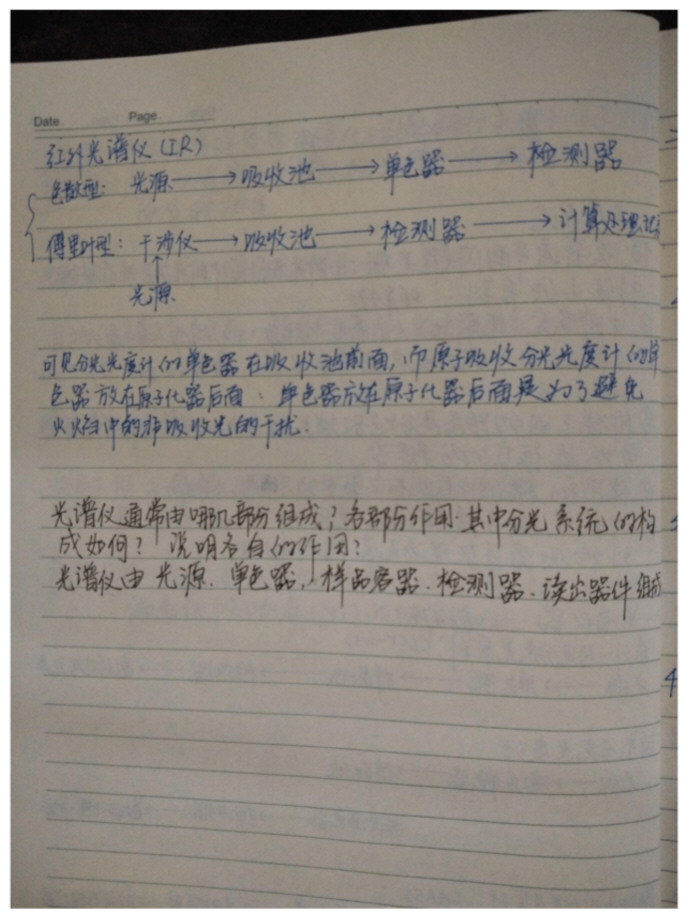 Date.
Page
红外光谱仪(IR)
色散型: 光源→吸收池→单色器→检测器
傅里叶型: 干涉仪→吸收池→检测器→计算处理
↑
光源
可见分光光度计的单色器在吸收池前面,而原子吸收分光光度计的单
色器放在原子化器后面: 单色器放在原子化器后面是为了避免
火焰中的非吸收光的干扰.
光谱仪通常由哪几部分组成?各部分作用.其中分光系统的构
成如何? 说明各自的作用?
光谱仪由光源、单色器、样品容器、检测器、读出器件组成
4